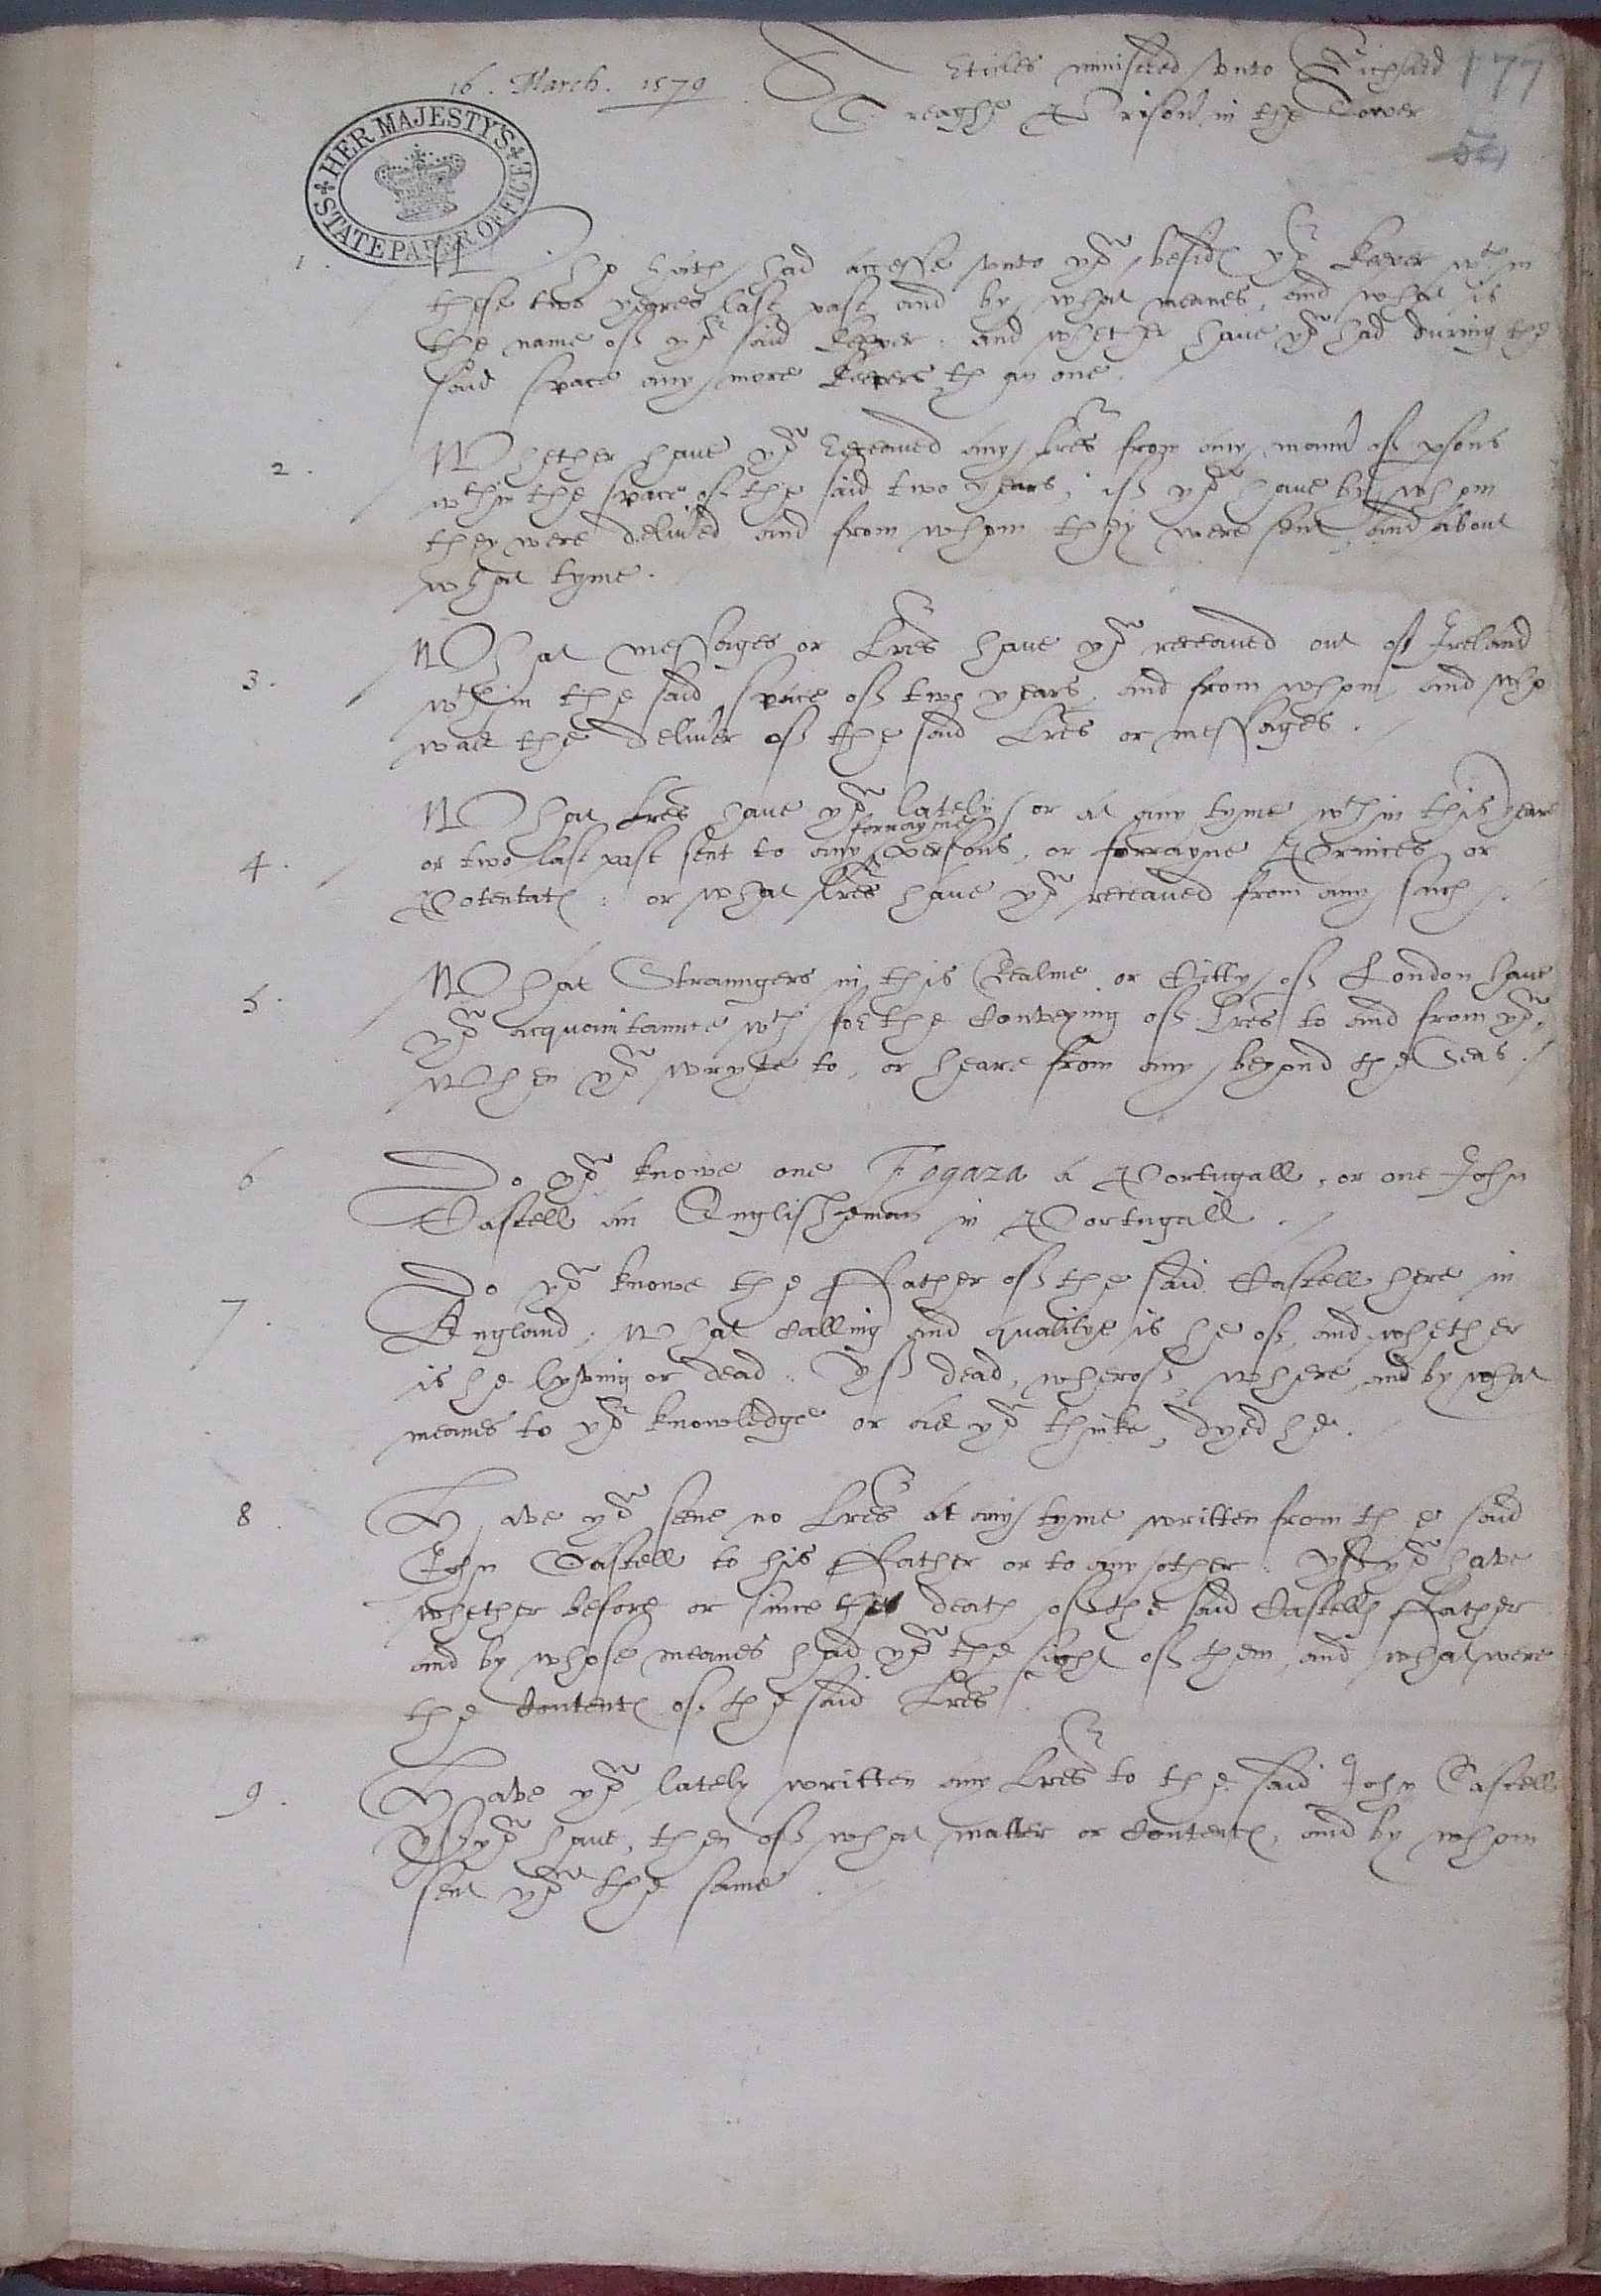 16. March. 1579
Articles ministred unto Richard
177
Creaghe Prison in the Tower
HER MAJESTY'S STATE PAPER OFFICE
1. Who hath had accesse unto yow besides yor Keeper wthin
these two yeares last past and by what meanes, and what is
the name of yor said Keeper. and whether have yow had during the
said space any more Keepers then one.
2. Whether have yow receaved any lres from any mannr of psons
wthin the space of the said two years, if yow have by whom
they were delivred and from whom they were sent, and about
what tyme.
3. What messages or Lres have yow receaved out of Ireland
wthin the said space of two years, and from whom, and who
was the delivrer of the said Lres or messages.
4. What Lres have yow lately, or at any tyme wthin this yeare
forrayne
or two last past sent to any persons, or forrayne Princes or
Potentates: or what lres have yow receaved from any such.
5. What Straungers in this Realme or Citty of London have
yow acquaintance wth for the conveying of lres to and from yow,
When yow wryte to, or heare from any beyond the Seas.
6 Do yow knowe one Fogaza a Portugall, or one John
Castell an Englisheman in Portugall.
7. Do yow knowe the Father of the said Castell here in
England, What calling and qualitye is he of, and whether
is he lyving or dead. Yf dead, wherof, where, and by what
meanes to yor knowledge or as yow thinke, dyed he.
8. Have yow sene no Lres at any tyme written from the said
John Castell to his Father or to any other. Yf yow have
whether before or since the death of the said Castells Father
and by whose meanes had yow the sight of them, and what were
the contents of the said Lres
9. Have yow lately written any Lres to the said John Castell
Yf yow have, then of what matter or contents, and by whom
sent yow the same.